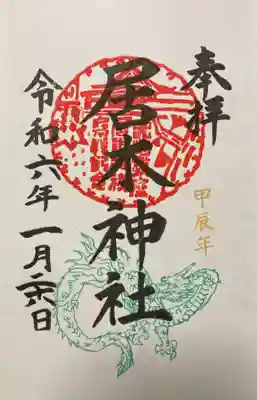 奉拝
甲辰年
居木神社
令和六年一月日